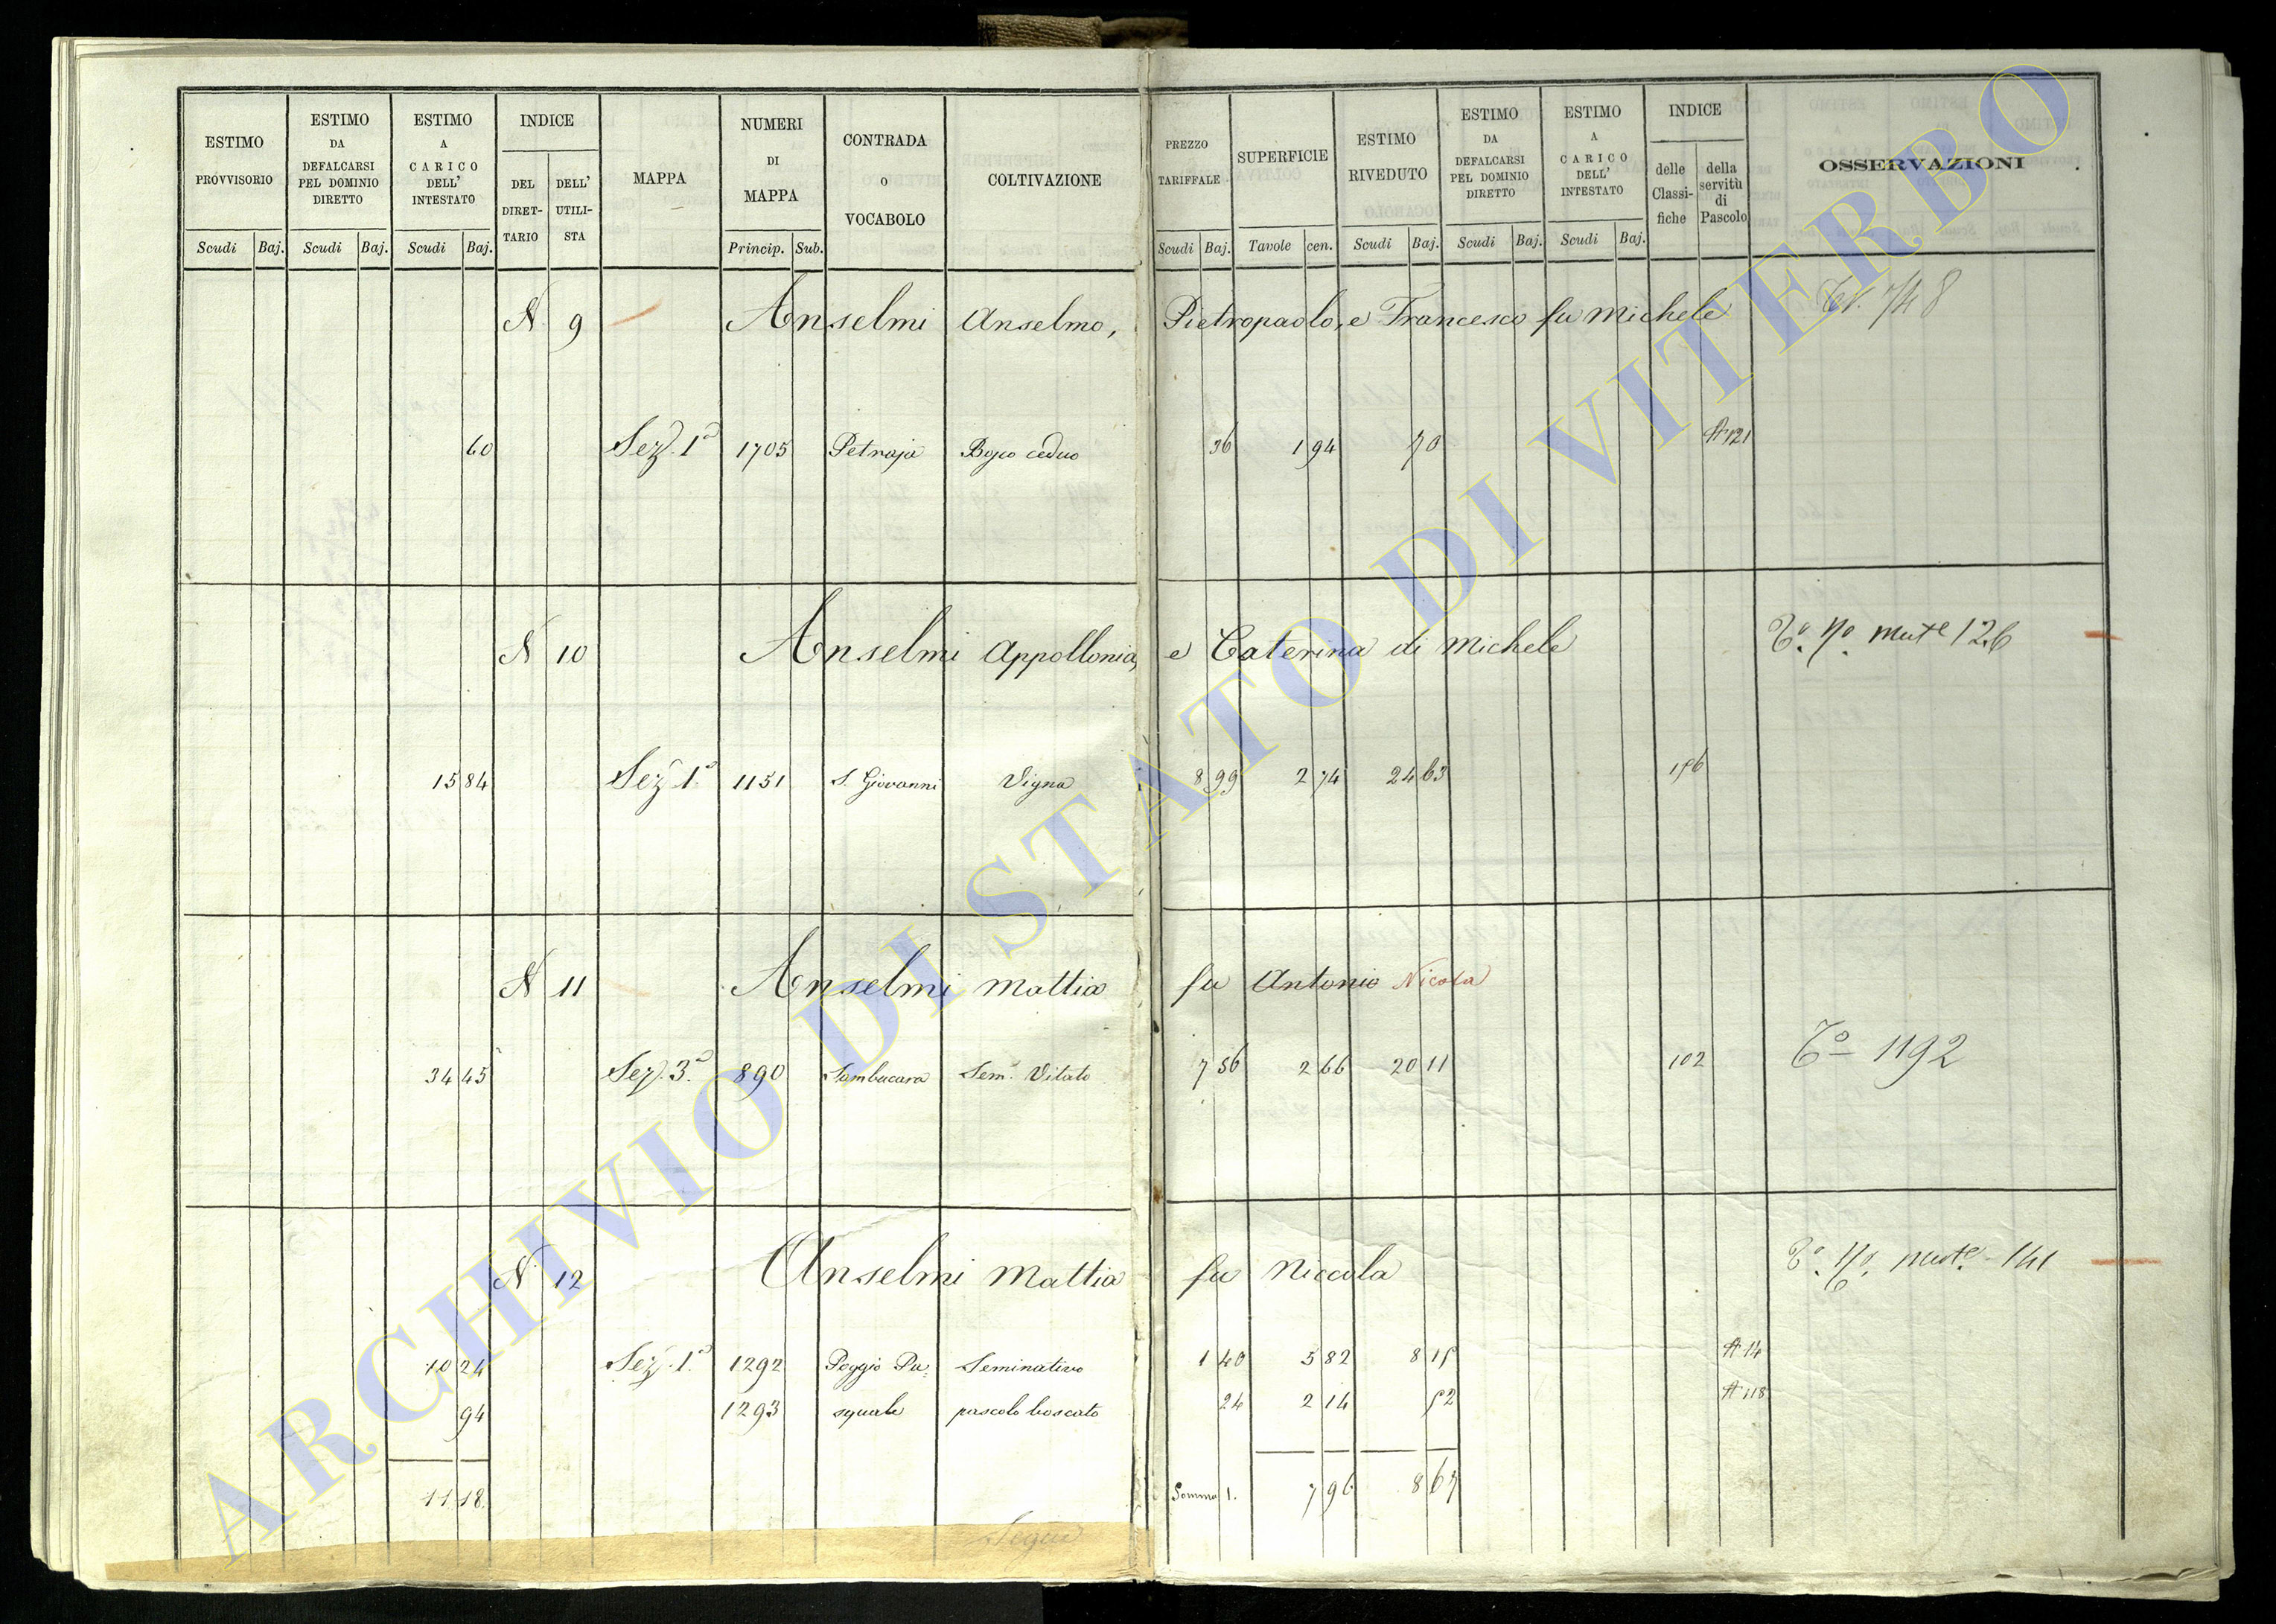 ESTIMO PROVVISORIO Scudi Baj.
ESTIMO DA DEFALCARSI PEL DOMINIO DIRETTO Scudi Baj.
ESTIMO A CARICO DELL' INTESTATO Scudi Baj.
INDICE DEL DIRET- TARIO DELL' UTILI- STA
MAPPA
NUMERI DI MAPPA Princip. Sub.
CONTRADA O VOCABOLO
COLTIVAZIONE
PREZZO TARIFFALE Scudi Baj.
SUPERFICIE Tavole cen.
ESTIMO RIVEDUTO Scudi Baj.
ESTIMO DA DEFALCARSI PEL DOMINIO DIRETTO Scudi Baj.
ESTIMO A CARICO DELL' INTESTATO Scudi Baj.
INDICE delle Classi- fiche della servitù di Pascolo
OSSERVAZIONI
N 9 Anselmi Anselmo, Pietropaolo, e Francesco fu Michele 748
60 Sez. 1a 1705 Petraja Bosco ceduo 36 1 94 70 A 121
N 10 Anselmi Appollonia, e Caterina di Michele To. 70. mute 126
15 84 Sez 1a 1151 S. Giovanni Vigna 8 99 2 74 24 63 156
N 11 Anselmi Mattia fu Antonio Nicola
34 45 Sez. 3a 890 Sambucara Sem. Vitato 7 56 2 66 20 11 102 To 1192
N 12 Anselmi Mattia fu Niccola To. 70. mute. 141
10 24 Sez. 1a 1292 Poggio Pa= Seminativo 1 40 5 82 8 15 A 14
94 1293 squale pascolo boscato 24 2 14 52 A 118
11 18 Somma 1. 7 96 8 67
Segue
ARCHIVIO DI STATO DI VITERBO